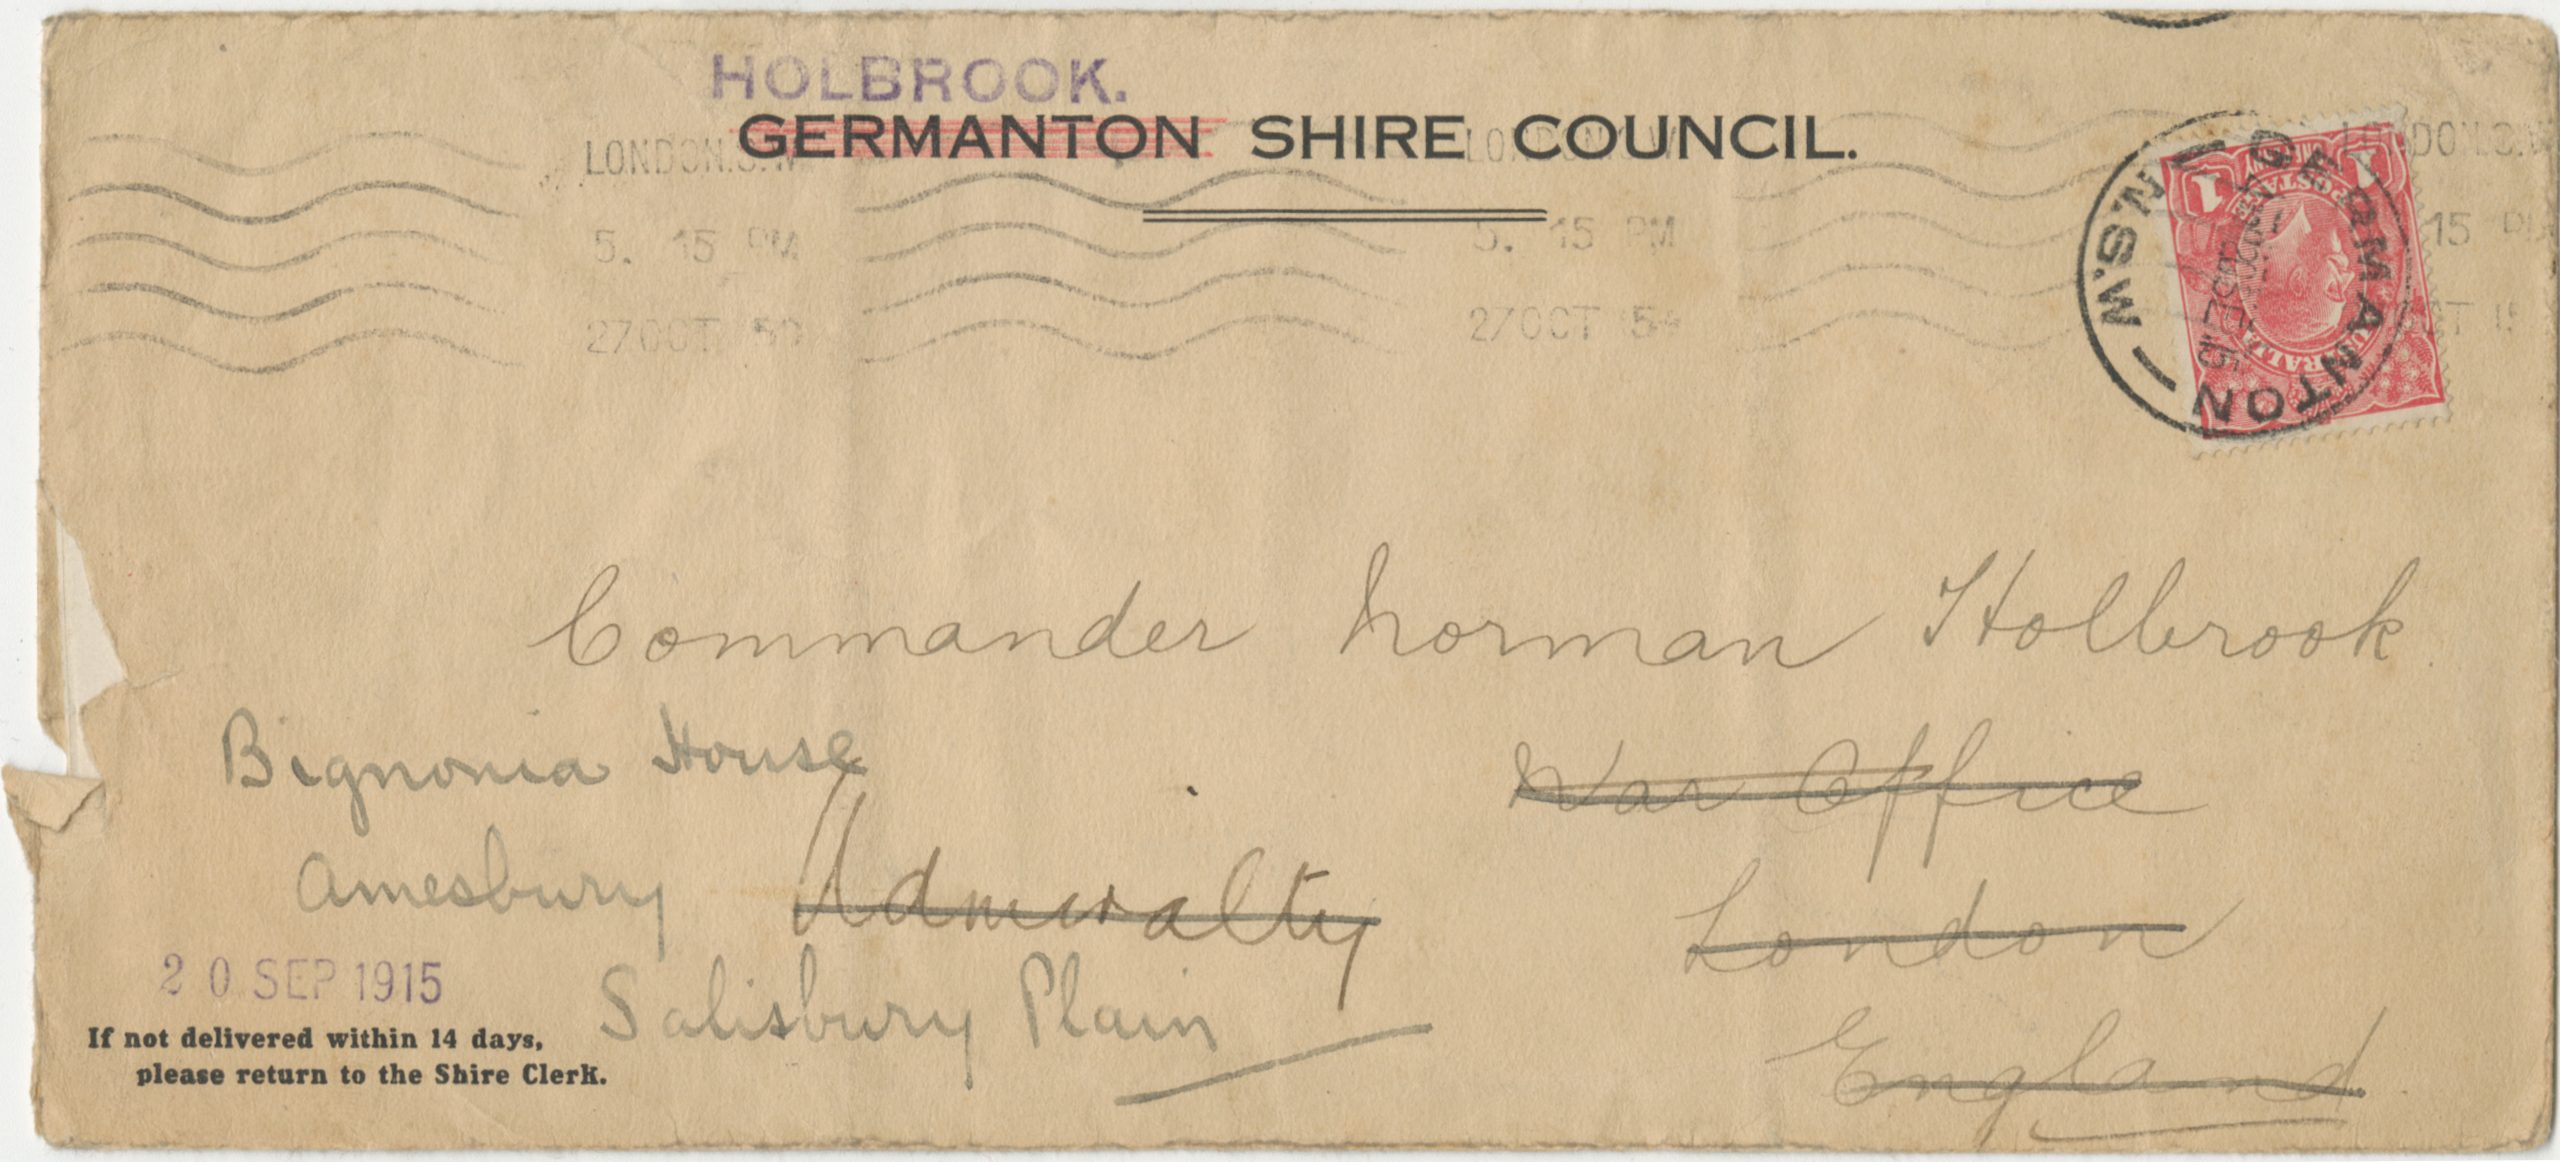 HOLBROOK.
GERMANTON SHIRE COUNCIL.
LONDON.S.W
5. 15 PM
27 OCT
LONDON.S.W
5. 15 PM
27 OCT
15
GERMANTON
N.S.W
1 1
Commander Norman Holbrook
War Office
London
England
Admiralty
Bignonia House
Amesbury
Salisbury Plain
20 SEP 1915
If not delivered within 14 days,
please return to the Shire Clerk.